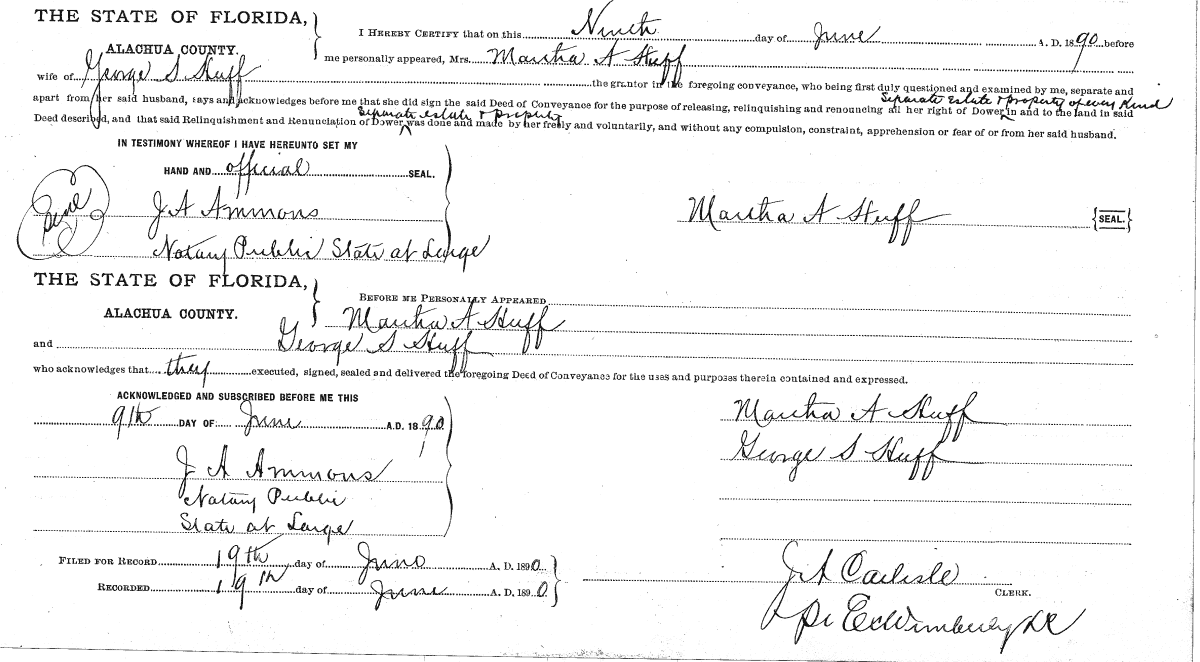 THE STATE OF FLORIDA,
ALACHUA COUNTY.
I HEREBY CERTIFY that on this Ninth day of June A. D. 1890 before
me personally appeared, Mrs. Martha A Huff
wife of George S Huff the grantor in the foregoing conveyance, who being first duly questioned and examined by me, separate and
apart from her said husband, says and acknowledges before me that she did sign the said Deed of Conveyance for the purpose of releasing, relinquishing and renouncing all her right of Dower Separate Estate & property of every Kind in and to the land in said
Deed described, and that said Relinquishment and Renunciation of Dower Separate estate & property was done and made by her freely and voluntarily, and without any compulsion, constraint, apprehension or fear of or from her said husband.
IN TESTIMONY WHEREOF I HAVE HEREUNTO SET MY
HAND AND official SEAL.
Seal
J A Ammons
Notary Public State at Large
Martha A Huff {SEAL.}
THE STATE OF FLORIDA,
ALACHUA COUNTY.
BEFORE ME PERSONALLY APPEARED
Martha A Huff
and George S Huff
who acknowledges that they executed, signed, sealed and delivered the foregoing Deed of Conveyance for the uses and purposes therein contained and expressed.
ACKNOWLEDGED AND SUBSCRIBED BEFORE ME THIS
9th DAY OF June A.D. 1890
J A Ammons
Notary Public
State at Large
Martha A Huff
George S Huff
FILED FOR RECORD 19th day of June A. D. 1890
RECORDED 19th day of June A. D. 1890
J A Carlisle
CLERK.
Wimberly DC